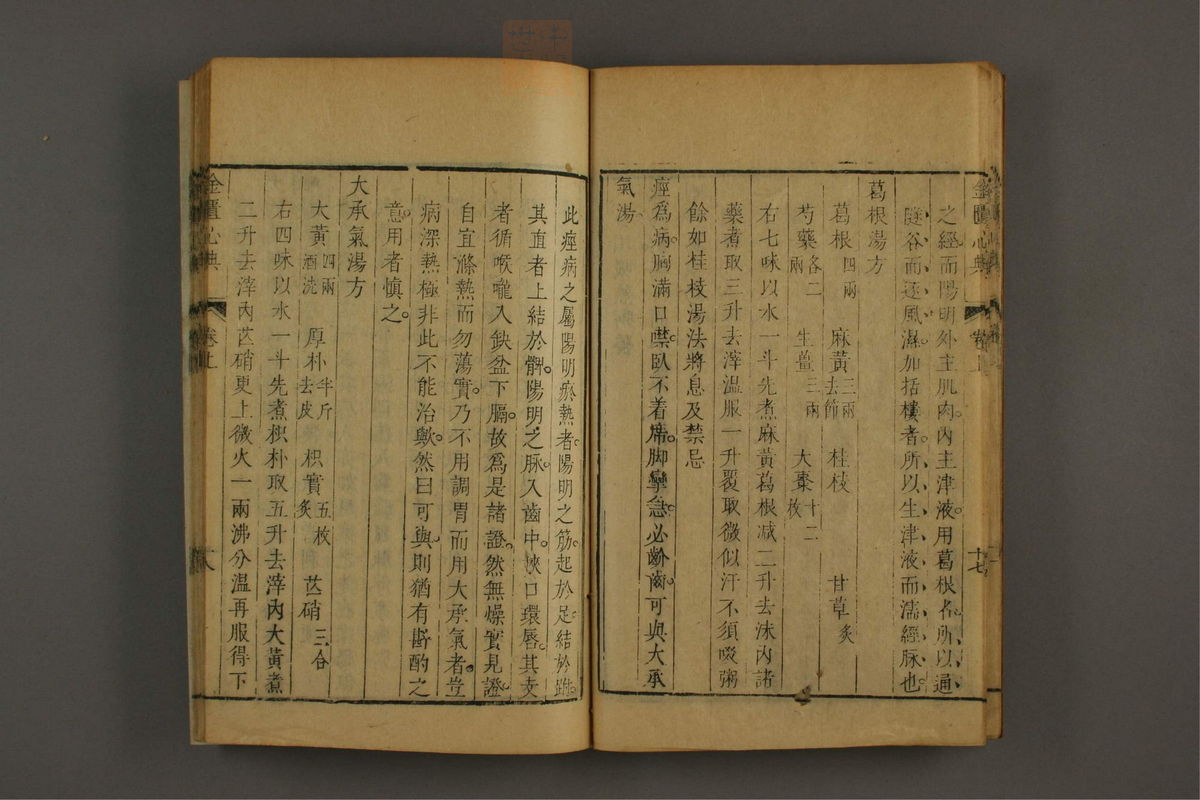 金匱心典 卷上 十七
之經而陽明外主肌肉。內主津液。用葛根者。所以通
隧谷而逐風濕。加括樓者。所以生津液而濡經脉也。
葛根湯方
葛根四兩 麻黃三兩去節 桂枝 甘草炙
芍藥各二兩 生薑三兩 大棗十二枚
右七味以水一斗先煮麻黃葛根减二升去沫內諸
藥煮取三升去滓溫服一升覆取微似汗不須啜粥
餘如桂枝湯法將息及禁忌
痙爲病。胸滿口噤。臥不着席。脚攣急。必齘齒。可與大承
氣湯。
此痙病之屬陽明瘀熱者。陽明之筋。起於足。結於跗。
其直者上結於髀。陽明之脉。入齒中。挾口環唇。其支
者循喉嚨。入缺盆下膈。故爲是諸證。然無燥實見證。
自宜滌熱而勿蕩實。乃不用調胃而用大承氣者。豈
病深熱極非此不能治歟。然曰可與。則猶有斟酌之
意。用者慎之。
大承氣湯方
大黃四兩酒洗 厚朴半斤去皮 枳實五枚炙 芒硝三合
右四味以水一斗先煮枳朴取五升去滓內大黃煮
二升去滓內芒硝更上微火一兩沸分溫再服得下
金匱心典 卷上